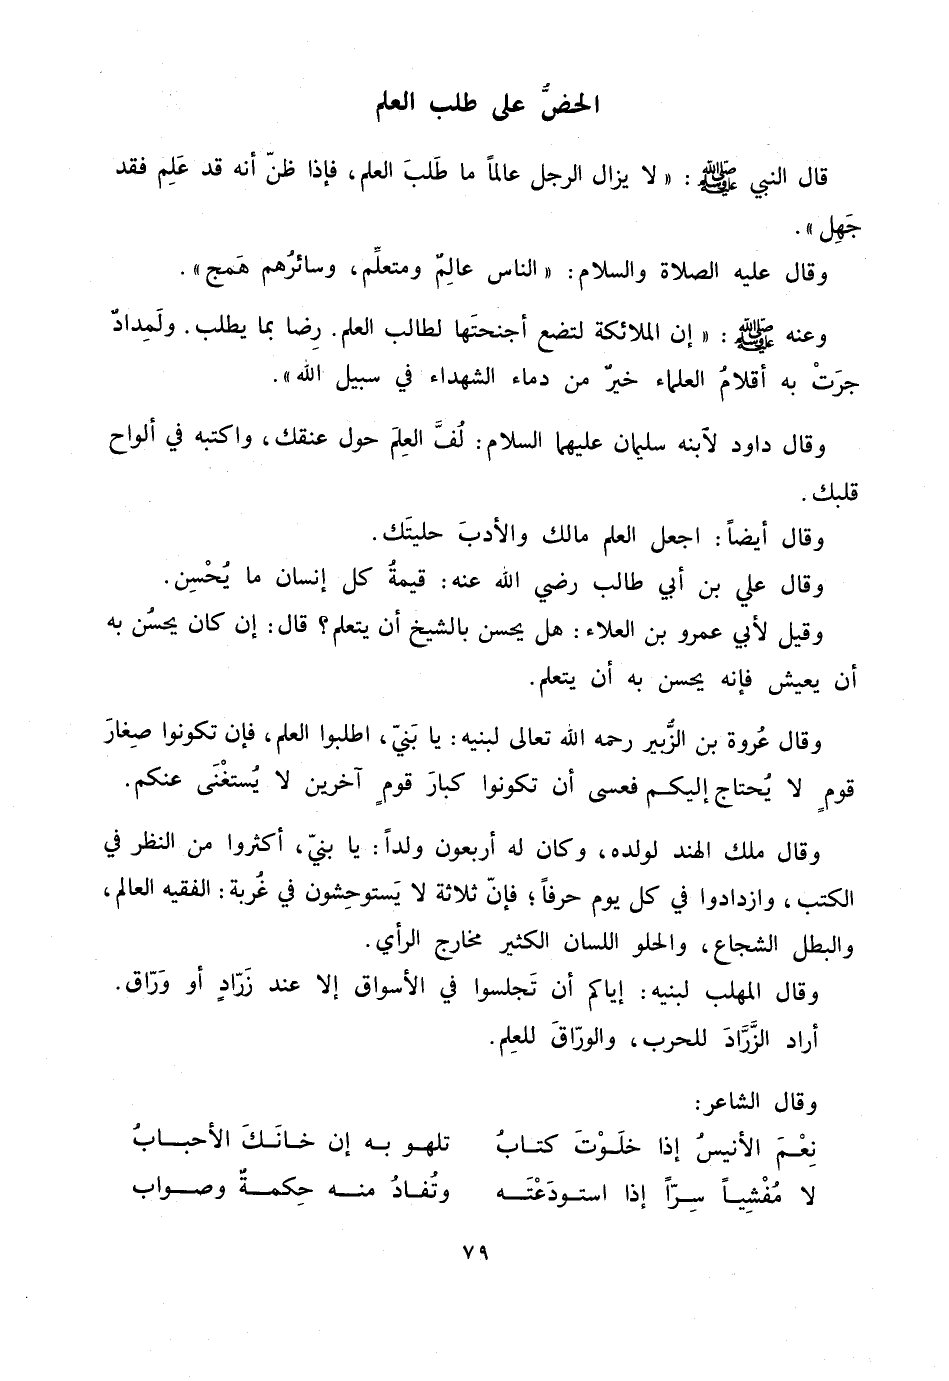 الحضُّ على طلب العلم
قال النبي ﷺ : « لا يزال الرجل عالماً ما طَلبَ العلم، فإذا ظنّ أنه قد عَلِم فقد
جَهِل ».
وقال عليه الصلاة والسلام: « الناس عالِمٌ ومتعلِّم، وسائرُهم هَمج ».
وعنه ﷺ : « إن الملائكة لتضع أجنحتَها لطالب العلم. رِضا بما يطلب. ولَمِدادٌ
جرَتْ به أقلامُ العلماء خيرٌ من دماء الشهداء في سبيل الله ».
وقال داود لآبنه سليمان عليهما السلام: لُفَّ العِلمَ حول عنقك، واكتبه في ألواح
قلبك.
وقال أيضاً: اجعل العلم مالك والأدبَ حليتَك.
وقال علي بن أبي طالب رضي الله عنه: قيمةُ كل إنسان ما يُحْسِن.
وقيل لأبي عمرو بن العلاء: هل يحسن بالشيخ أن يتعلم؟ قال: إن كان يحسُن به
أن يعيش فإنه يحسن به أن يتعلم.
وقال عُروة بن الزُّبير رحمه الله تعالى لبنيه: يا بَنيّ، اطلبوا العلم، فإن تكونوا صِغارَ
قومٍ لا يُحتاج إليكم فعسى أن تكونوا كبارَ قومٍ آخرين لا يُستغْنَى عنكم.
وقال ملك الهند لولده، وكان له أربعون ولداً: يا بنيّ، أكثروا من النظر في
الكتب، وازدادوا في كل يوم حرفاً؛ فإنّ ثلاثة لا يَستوحِشون في غُربة: الفقيه العالم،
والبطل الشجاع، والحلو اللسان الكثير مخارج الرأي.
وقال المهلب لبنيه: إياكم أن تَجلسوا في الأسواق إلا عند زَرّادٍ أو وَرّاق.
أراد الزَّرَّادَ للحرب، والورّاقَ للعِلم.
وقال الشاعر:
نِعْمَ الأنيسُ إذا خلَوْتَ كتابُ تلهو به إن خانَكَ الأحبابُ
لا مُفْشِياً سِرّاً إذا استودَعْتَه وتُفادُ منه حِكمةٌ وصواب
٧٩